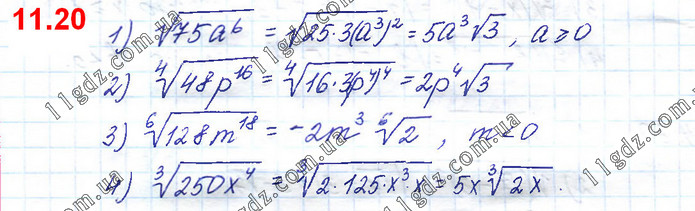 11.20
1) √75a⁶ = √25·3(a³)² = 5a³√3, a ≥ 0
2) ⁴√48p¹⁶ = ⁴√16·3(p⁴)⁴ = 2p⁴√3
3) ⁶√128m¹⁸ = -2m³ ⁶√2, m ≤ 0
4) ³√250x⁴ = ³√2·125·x³·x = 5x ³√2x.
11gdz.com.ua
11gdz.com.ua
11gdz.com.ua
11gdz.com.ua